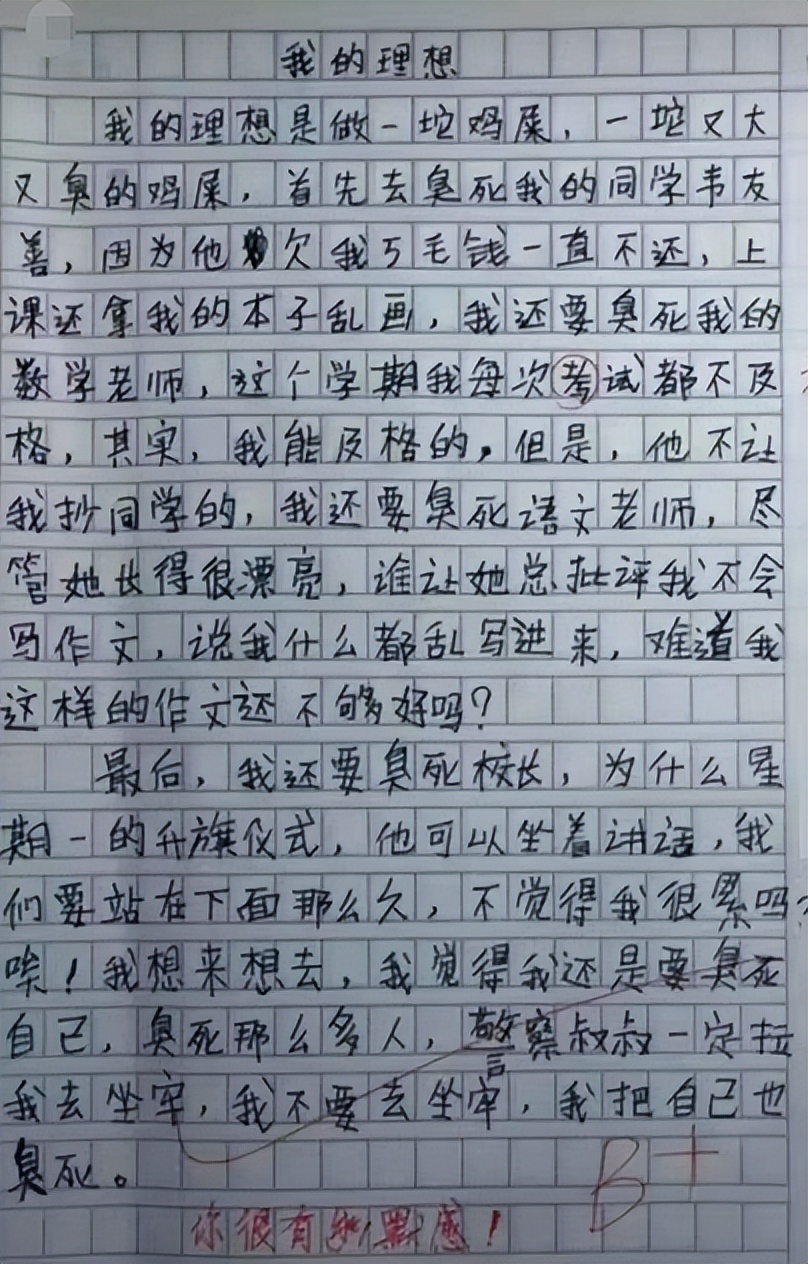 我的理想
我的理想是做一坨鸡屎，一坨又大
又臭的鸡屎，首先去臭死我的同学韦友
善，因为他欠我5毛钱一直不还，上
课还拿我的本子乱画，我还要臭死我的
数学老师，这个学期我每次考试都不及
格，其实，我能及格的，但是，他不让
我抄同学的，我还要臭死语文老师，尽
管她长得很漂亮，谁让她总批评我不会
写作文，说我什么都乱写进来，难道我
这样的作文还不够好吗？
最后，我还要臭死校长，为什么星
期一的升旗仪式，他可以坐着讲话，我
们要站在下面那么久，不觉得我很累吗？
唉！我想来想去，我觉得我还是要臭死
自己，臭死那么多人，警察叔叔一定拉
我去坐牢，我不要去坐牢，我把自己也
臭死。
B+
你很有幽默感！